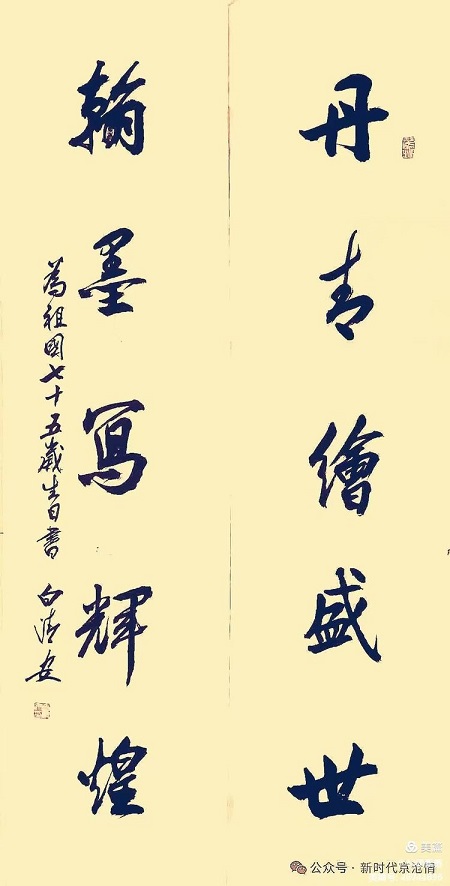 丹青繪盛世
翰墨寫輝煌
為祖國七十五歲生日書 白清安
公众号·新时代京范俏